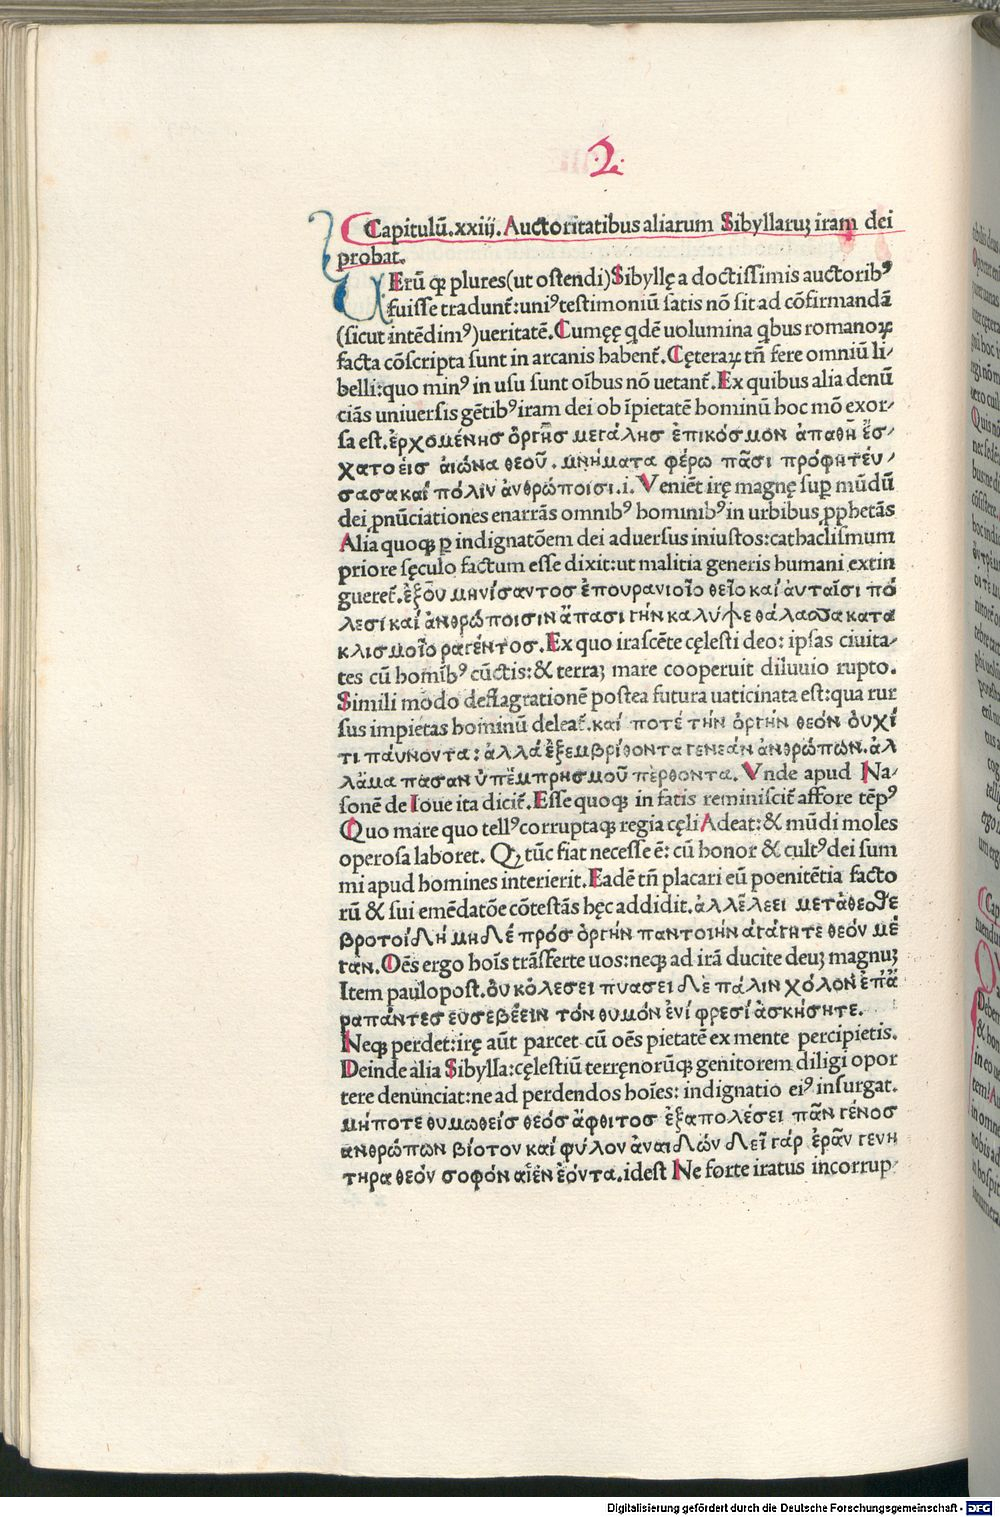 .2.
Capitulū.xxiij. Auctoritatibus aliarum Sibyllaruꝫ iram dei
probat.
VErū qꝫ plures(ut ostendi)Sibyllę a doctissimis auctoribꝰ
fuisse tradunt̄:uniꝰ testimoniū satis nō sit ad cōfirmandā
(sicut intēdimꝰ)ueritatē.Cumęę qdē uolumina qbus romanoꝝ
facta cōscripta sunt in arcanis habent̄.Cęteraꝝ tn̄ fere omniū li⸗
belli:quo minꝰ in usu sunt oībus nō uetant̄.Ex quibus alia denū
ciās uniuersis gētibꝰ iram dei ob īpietatē hominū hoc mō exor⸗
sa est.ἐρχομένησ ὀργῆσ μεγάλησ ἐπικόσμον ἀπαθῆ ἔσ⸗
χατοεισ αἰῶνα θεοῦ. μνήματα φέρω πᾶσι πρόφητέυ⸗
σασακαί πόλιν ἀνθρώποισι.i. Veniēt irę magnę suꝑ mūdū
dei ꝓnūciationes enarrās omnibꝰ hominibꝰ in urbibus ꝓphetās
Alia quoqꝫ ꝑ indignatōem dei aduersus iniustos:cathaclismum
priore sęculo factum esse dixit:ut malitia generis humani extin
gueret̄.ἐξοῦ μηνίσαντοσ ἐπουρανιοῖο θεῖο καί ἀυταῖσι πό
λεσί καί ἀνθρώποισιν ἅπασι γῆν καλυψε θάλασσα κατα
κλισμοῖο ραγέντοσ.Ex quo irascēte cęlesti deo: ipsas ciuita⸗
tes cū homībꝰ cūctis:& terraꝫ mare cooperuit diluuio rupto.
Simili modo deflagrationē postea futura uaticinata est:qua rur
sus impietas hominū deleat̄.καί ποτέ τὴν ὀργὴν θεόν ὀυχί
τι παυνοντα: ἀλλά ἐξεμβρίθοντα γενεάν ἀνθρώπων.ἀλ
λἄμα πασαν ὑπἔμπρησμοῦ περθοντα. Vnde apud Na⸗
sonē de Ioue ita dicit̄.Esse quoqꝫ in fatis reminiscit̄ affore tēpꝰ
Quo mare quo tellꝰ corruptaqꝫ regia cęli Adeat:& mūdi moles
operosa laboret. Qꝫ tūc fiat necesse ē: cū honor & cultꝰ dei sum
mi apud homines interierit.Eadē tn̄ placari eū poenitētia facto
rū & sui emēdatōe cōtestās hęc addidit.ἀλλἔλεει μετάθεσθε
βροτοι δή μηδέ πρόσ ὀργὴν παντοιὴν ἀγάγητε θεόν μέ
γαν.Oēs ergo hoīs trāsferte uos:neqꝫ ad irā ducite deuꝫ magnuꝫ
Item paulopost.ὀυκ ὀλεσει πυασει δὲ πάλιν χόλον ἐπἄ
ραπάντεσ ευσεβέειν τόν θυμόν ἐνί φρεσί ἀσκήσητε.
Neqꝫ perdet:irę aūt parcet cū oēs pietatē ex mente percipietis.
Deinde alia Sibylla:cęlestiū terrenorūqꝫ genitorem diligi opor
tere denūnciat:ne ad perdendos hoīes: indignatio eiꝰ insurgat.
μήποτε θυμωθείσ θεόσ ἄφθιτοσ ἐξαπολέσει πᾶν γένοσ
ανθρώπων βίοτον καί φύλον ἀναιδών δεῖ γάρ ἐρᾶν γενη
τηρα θεόν σοφόν αἰἐν ἐόντα.idest Ne forte iratus incorrup⸗
Digitalisierung gefördert durch die Deutsche Forschungsgemeinschaft - DFG